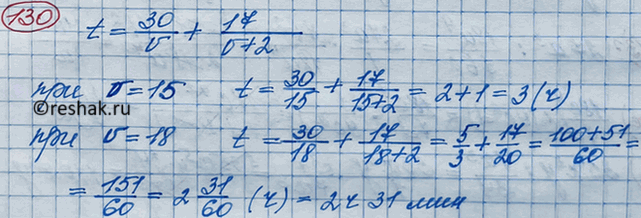 130
t = 30/v + 17/(v+2)
при v = 15 t = 30/15 + 17/(15+2) = 2+1 = 3 (ч)
©reshak.ru
при v = 18 t = 30/18 + 17/(18+2) = 5/3 + 17/20 = (100+51)/60 =
= 151/60 = 2 31/60 (ч) = 2ч 31 мин